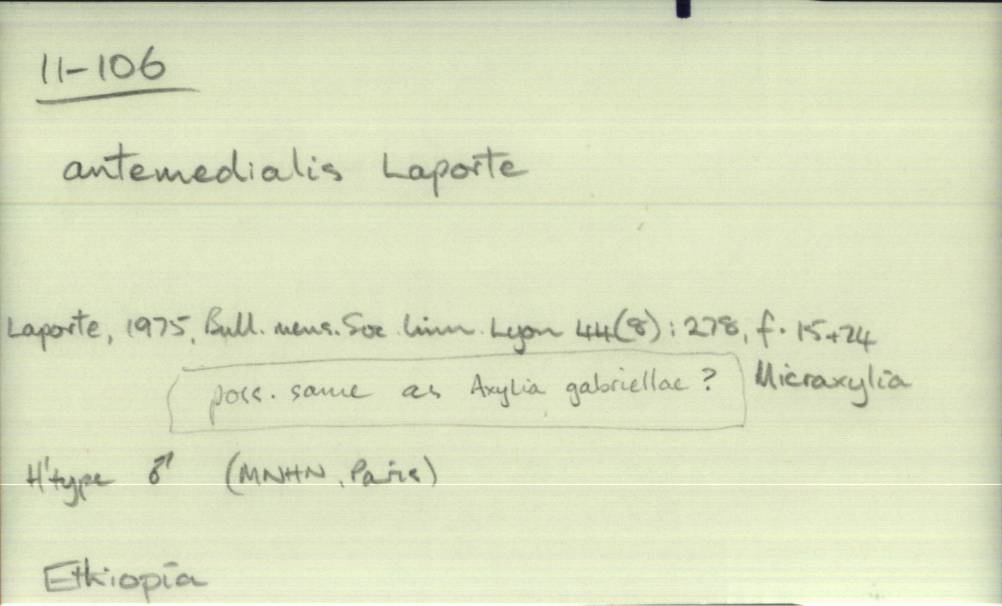 11-106
antemedialis Laporte
Laporte, 1975, Bull. mens. Soc. linn. Lyon 44(8): 278, f. 15+24
poss. same as Axylia gabriellae ? Microxylia
H'type ♂ (MNHN, Paris)
Ethiopia